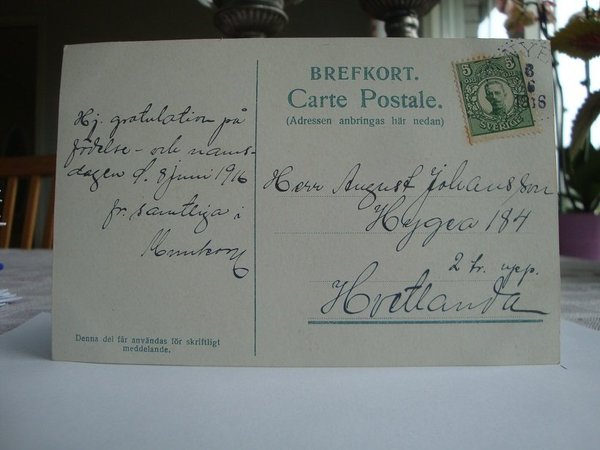 Hj. gratulation på
födelse- och namns-
dagen d. 8 juni 1916
fr. samtliga i
Denna del får användas för skriftligt
meddelande.
BREFKORT.
Carte Postale.
(Adressen anbringas här nedan)
5 5
SVERIGE
Herr August Johansson
Hygea 184
2 tr. upp.
Hvetlanda